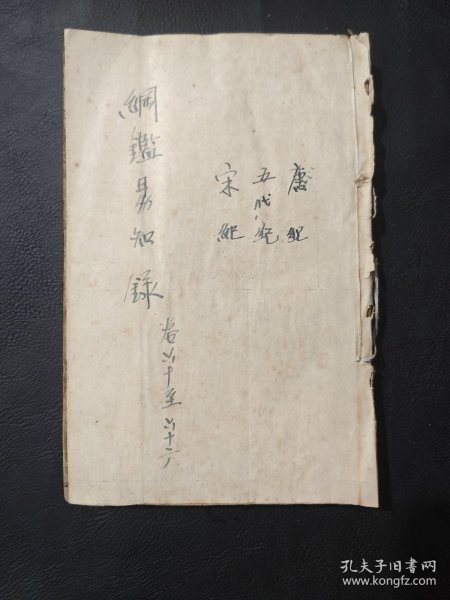 唐紀
五代紀
宋紀
綱鑑易知錄
卷六十至六十六
孔夫子旧书网
www.kongfz.com